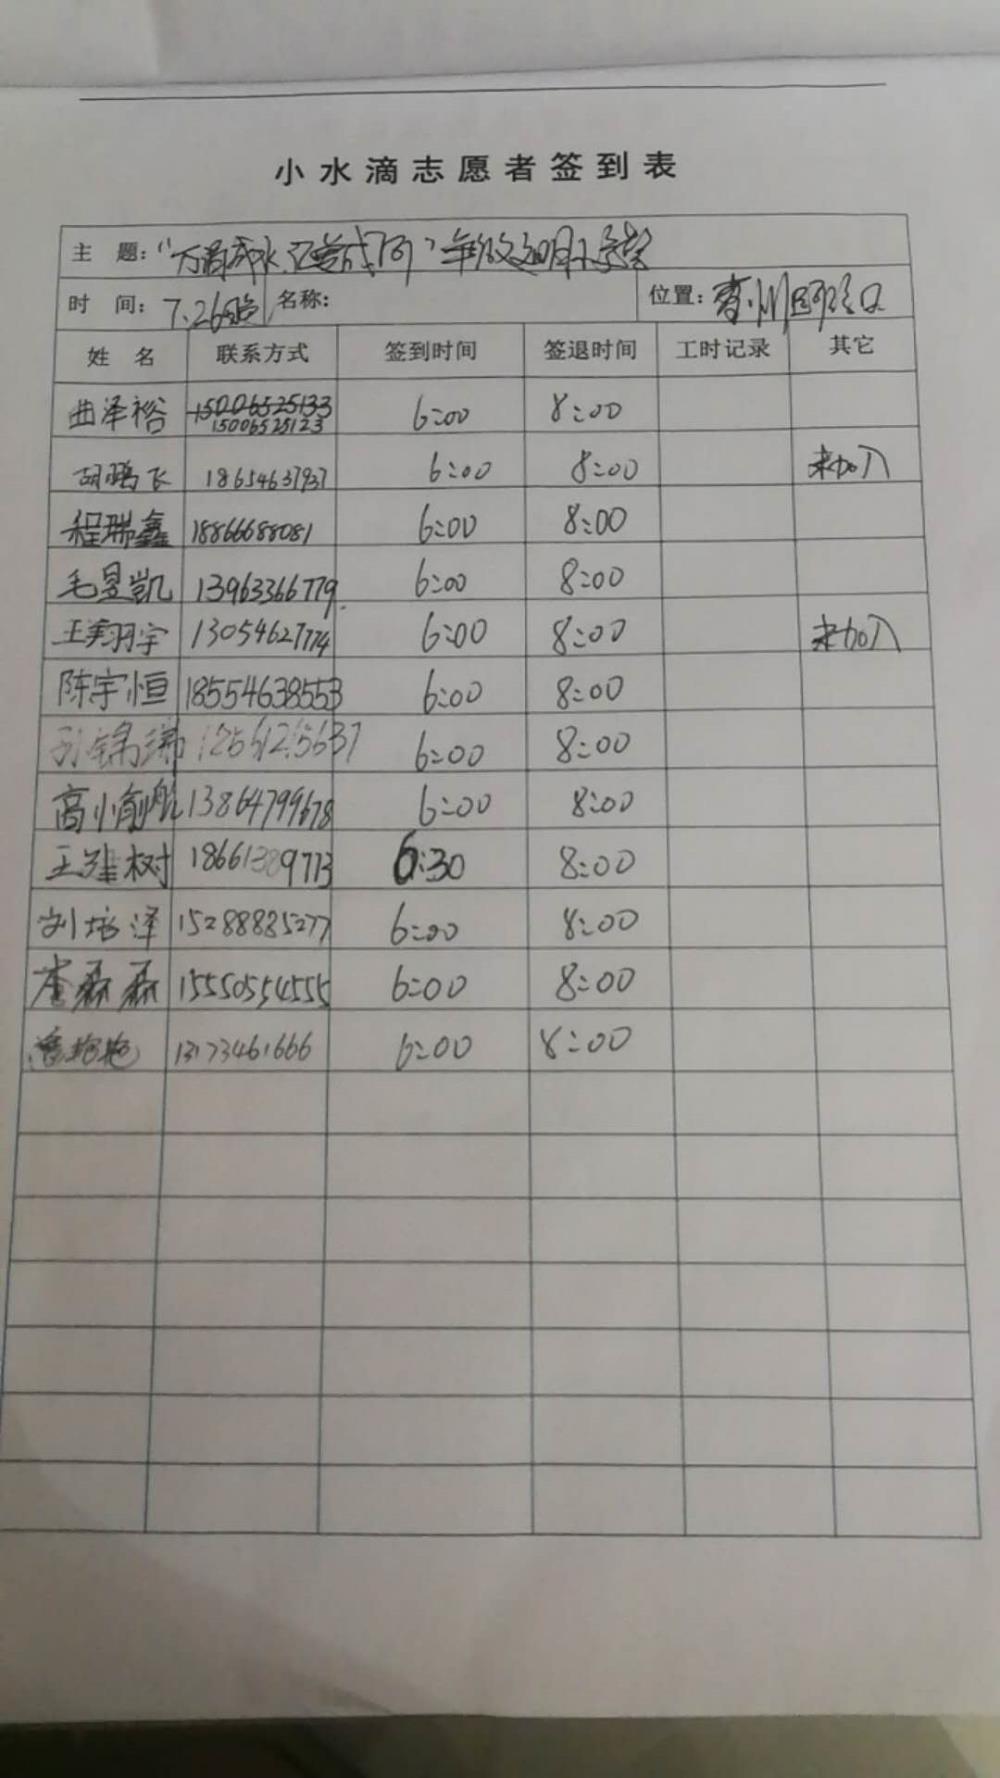 小水滴志愿者签到表
主 题：
时 间：7.26 名称： 位置：
姓 名 联系方式 签到时间 签退时间 工时记录 其它
曲泽裕 15006525133 15006525123 6:00 8:00
胡鹏飞 18654637937 6:00 8:00 未加入
程瑞鑫 18866688081 6:00 8:00
毛昱凯 13963366779 6:00 8:00
王翔宇 13054627774 6:00 8:00 未加入
陈宇恒 18554638553 6:00 8:00
6:00 8:00
高小俞航 13864799678 6:00 8:00
王 树 18661389713 6:30 8:00
刘培泽 15288885277 6:00 8:00
李磊磊 15550554555 6:00 8:00
13173461666 6:00 8:00